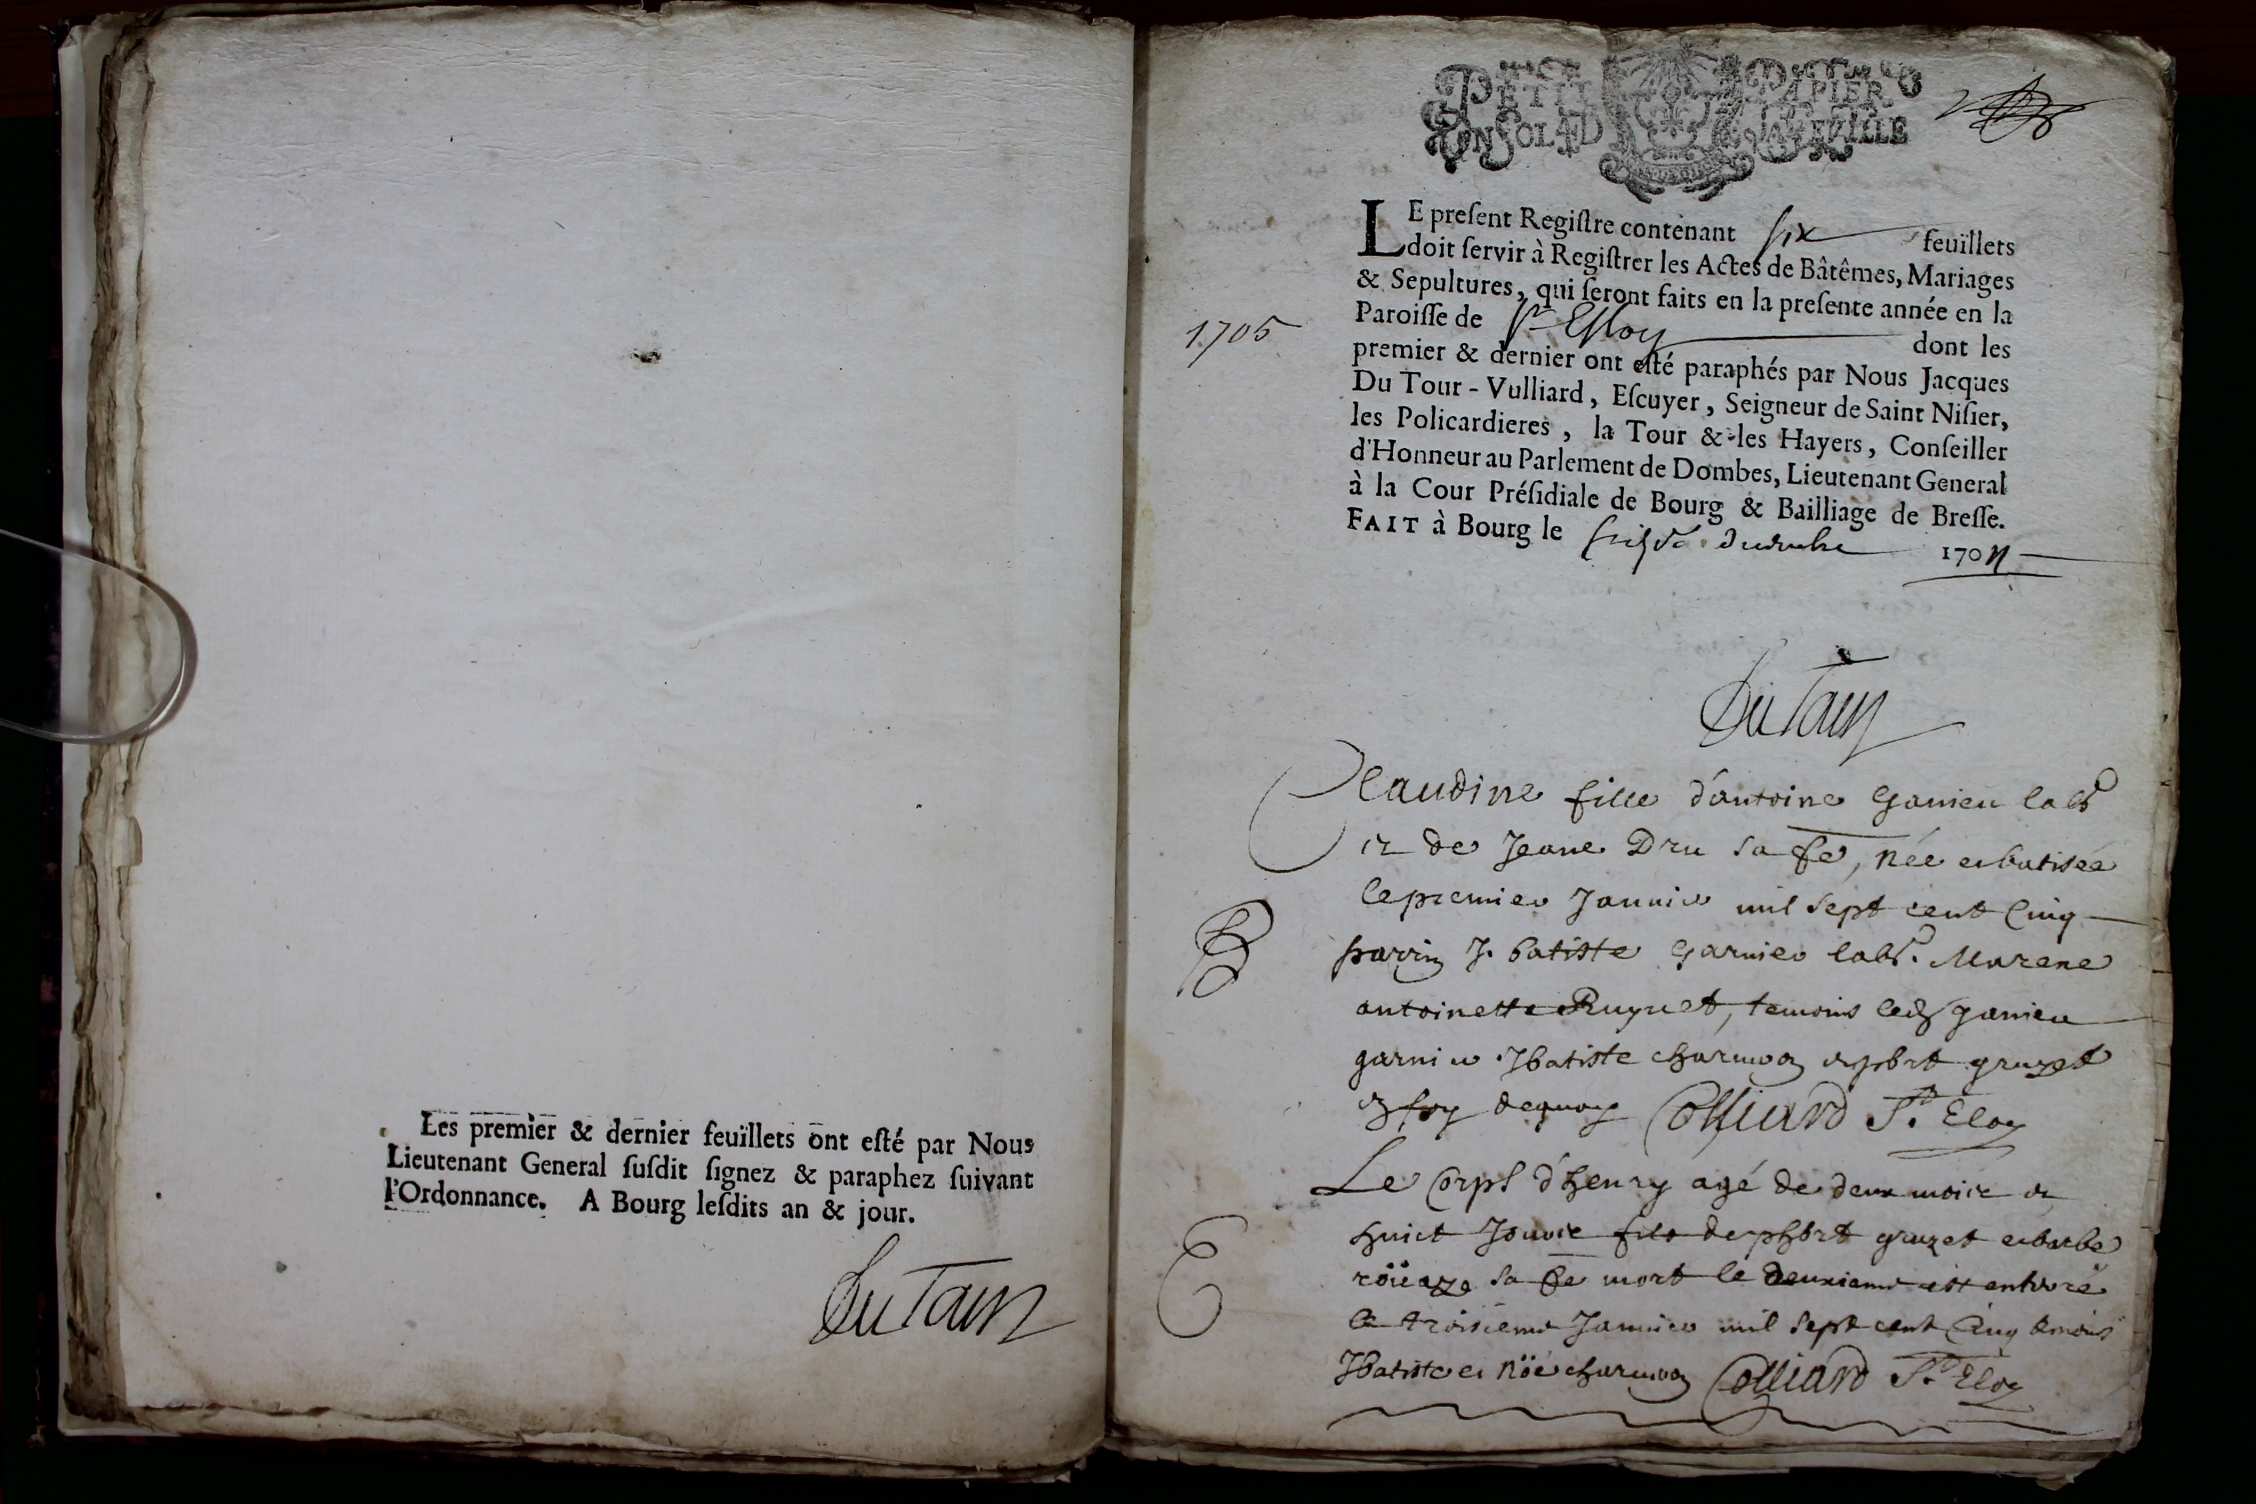 Les premier & dernier feuïllets ont esté par Nous
Lieutenant General susdit signez & paraphez suivant
l'Ordonnance. A Bourg lesdits an & jour.
Du Tour
PETIT PAPIER
UN SOL LA FEUILLE
LE present Registre contenant six feuïllets
doit servir à Registrer les Actes de Bâtêmes, Mariages
& Sepultures, qui seront faits en la presente année en la
Paroisse de St Elloy dont les
1705
premier & dernier ont esté paraphés par Nous Jacques
Du Tour-Vulliard, Escuyer, Seigneur de Saint Nisier,
les Policardieres, la Tour & les Hayers, Conseiller
d'Honneur au Parlement de Dombes, Lieutenant General
à la Cour Présidiale de Bourg & Bailliage de Bresse.
FAIT à Bourg le 170
Du Tour
Claudine fille d'antoine ganieu labr
et de Jeane Dru sa fe, née et batisée
le premier Janvier mil sept cent Cinq
B
parrin J. batiste garnier labr. Marene
antoinette Ruynet, temoins led ganieu
garnier Jbatiste charnvon et phbrt gruzet
en foy dequoy Colliard St. Eloy
Le Corps d'henry agé de deux mois et
huict Jours fils de phbrt gruzet et barbe
E
sa fe mort le deuxieme est enterré
le troisieme Janvier mil sept cent Cinq temoins
Jbatiste et Nöé Colliard St. Eloy